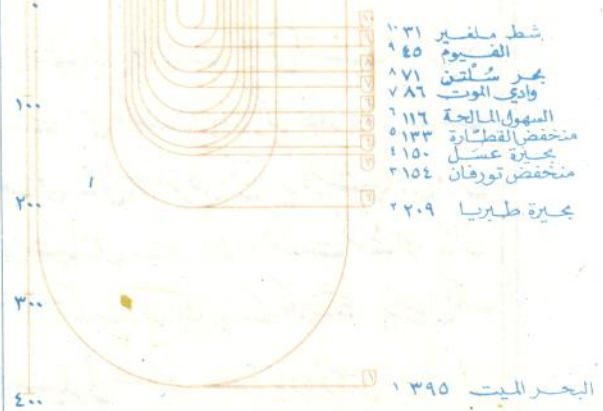 ٠
١٠٠
٢٠٠
٣٠٠
٤٠٠
شط ملغير ٣١ ١٠
الفيوم ٤٥ ٩
بحر سُلْتن ٧١ ٨
وادي الموت ٨٦ ٧
السهول المالحة ١١٦ ٦
منخفض القطّارة ١٣٣ ٥
بحيرة عسَل ١٥٠ ٤
منخفض تورفان ١٥٤ ٣
بحيرة طبريا ٢٠٩ ٢
البحر الميت ٣٩٥ ١